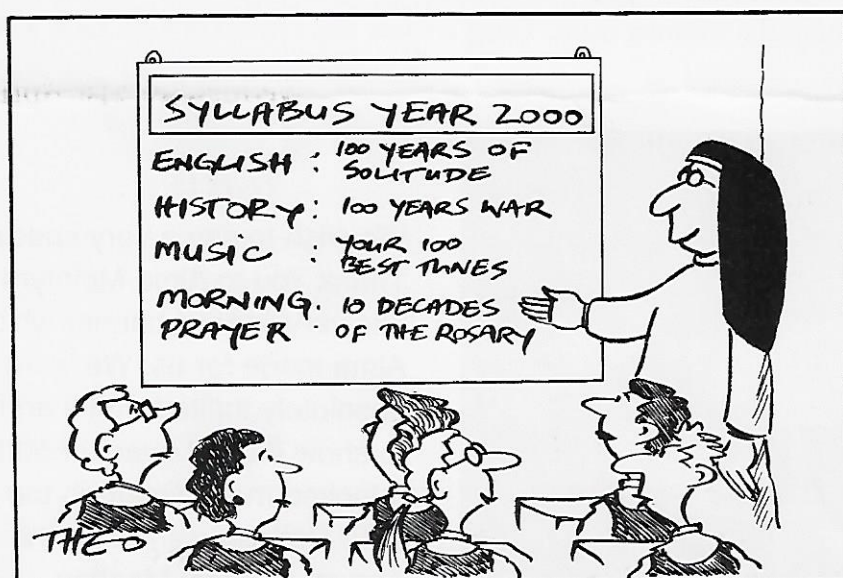 SYLLABUS YEAR 2000
ENGLISH : 100 YEARS OF
SOLITUDE
HISTORY : 100 YEARS WAR
MUSIC : YOUR 100
BEST TUNES
MORNING. 10 DECADES
PRAYER OF THE ROSARY
THEO